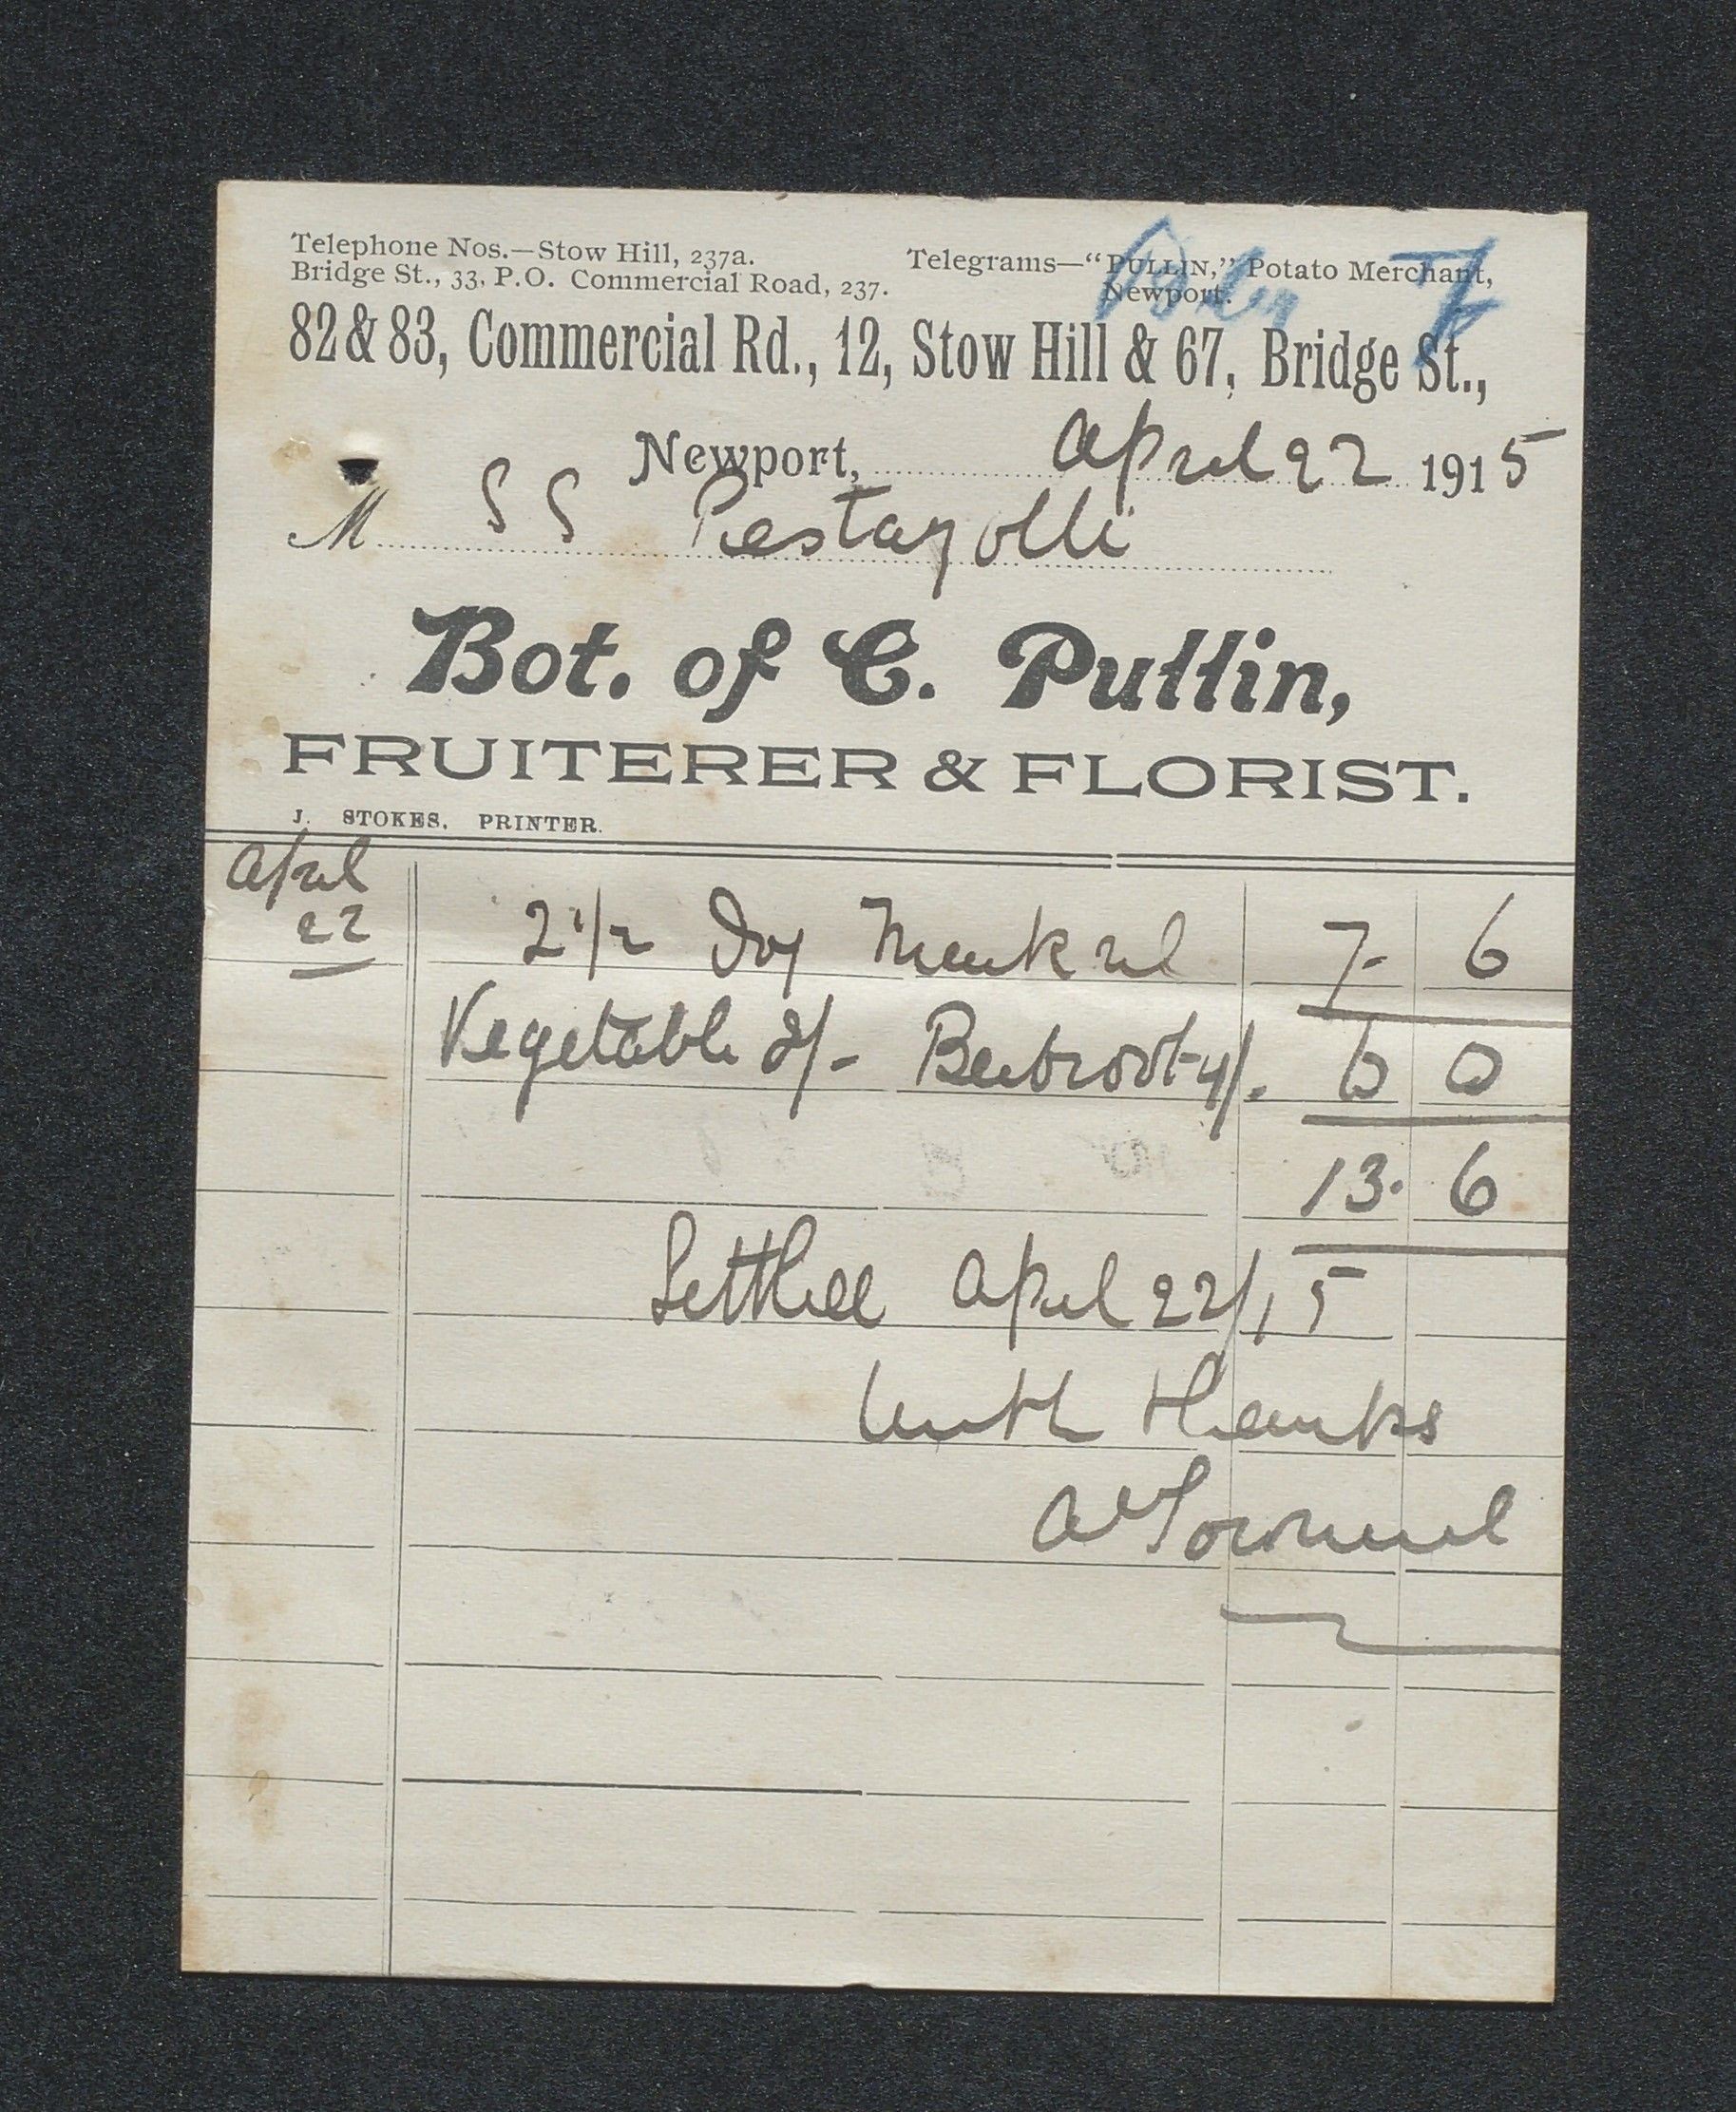 Telephone Nos.—Stow Hill, 237a.
Bridge St., 33, P.O. Commercial Road, 237.
Telegrams—"PULLIN," Potato Merchant,
Newport.
82 & 83, Commercial Rd., 12, Stow Hill & 67, Bridge St.,
Newport, April 22 1915
M SS Pestazolli
Bot. of C. Pullin,
FRUITERER & FLORIST.
J. STOKES, PRINTER.
April
22
2 1/2 Doz 7- 6
Vegetable 2/- Beetroot 4/- 6 0
13. 6
Settled April 22/15
With thanks